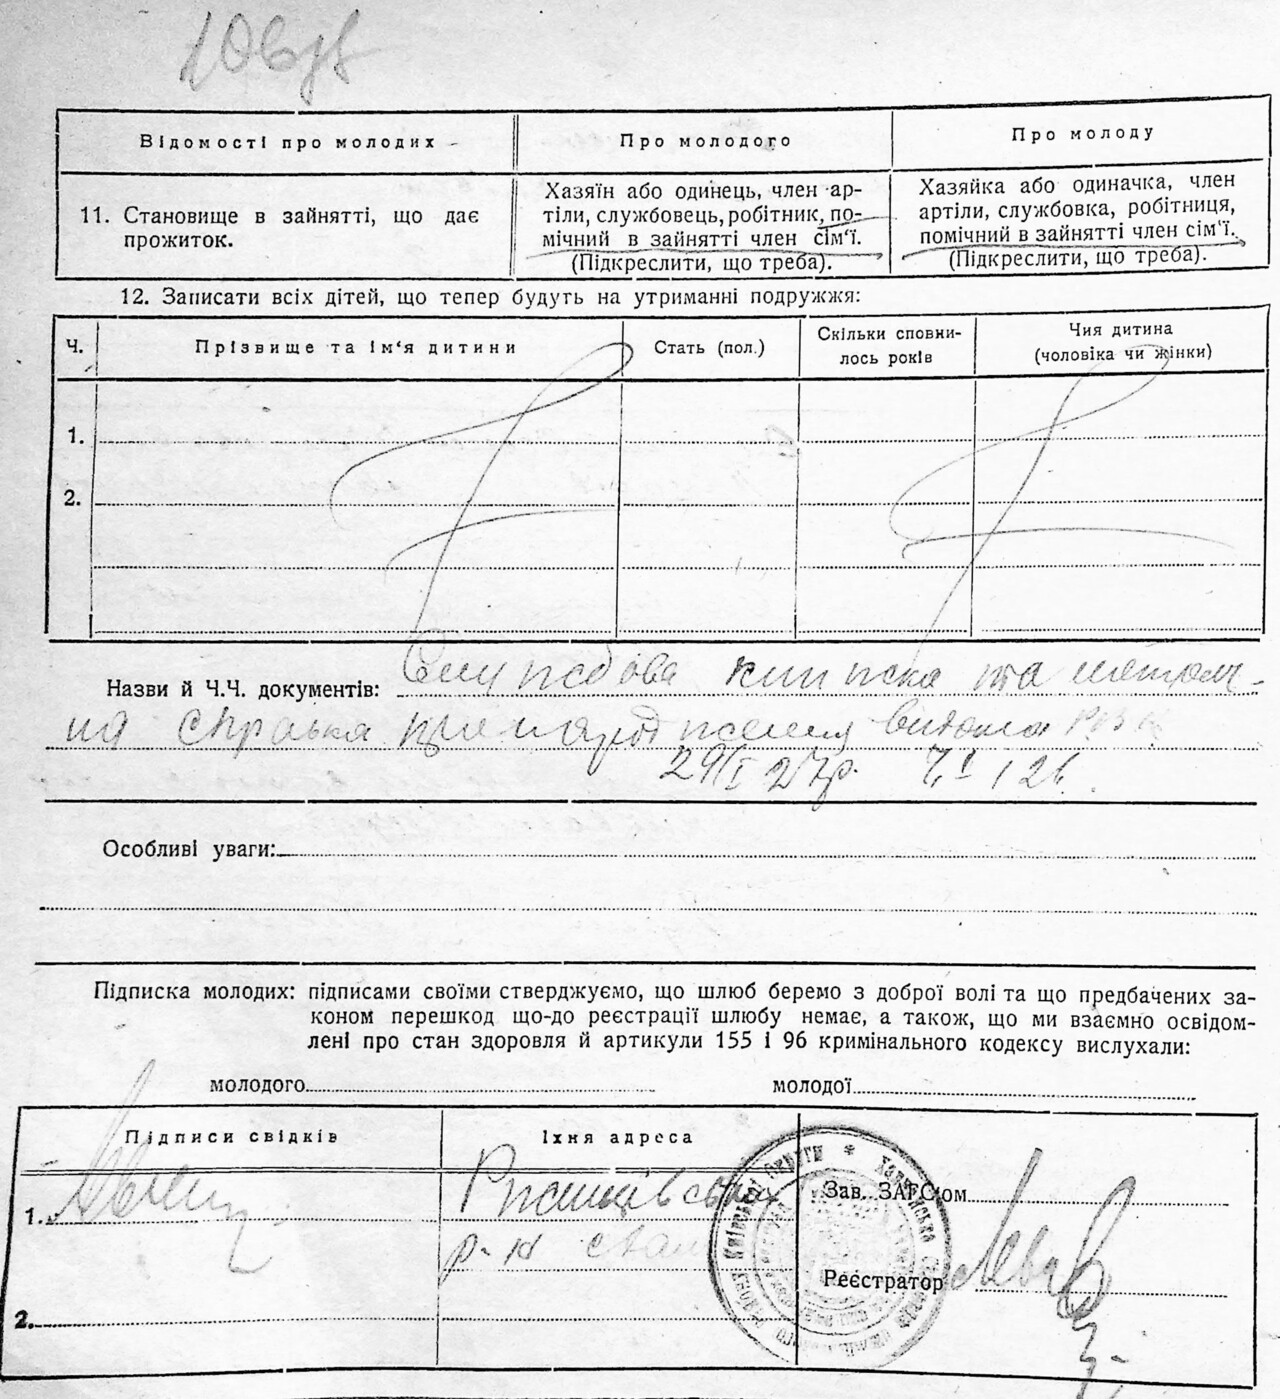 Відомості про молодих
Про молодого
Про молоду
11. Становище в зайнятті, що дає
прожиток.
Хазяїн або одинець, член ар-
тіли, службовець, робітник, по-
мічний в зайнятті член сім'ї.
(Підкреслити, що треба).
Хазяйка або одиначка, член
артіли, службовка, робітниця,
помічний в зайнятті член сім'ї.
(Підкреслити, що треба).
12. Записати всіх дітей, що тепер будуть на утриманні подружжя:
Ч.
Прізвище та ім'я дитини
Стать (пол.)
Скільки сповни-
лось років
Чия дитина
(чоловіка чи жінки)
1.
2.
Назви й Ч.Ч. документів: книжка та
справка видана
Особливі уваги:
Підписка молодих: підписами своїми стверджуємо, що шлюб беремо з доброї волі та що предбачених за-
коном перешкод що-до реєстрації шлюбу немає, а також, що ми взаємно освідом-
лені про стан здоровля й артикули 155 і 96 кримінального кодексу вислухали:
молодого
молодої
Підписи свідків
Їхня адреса
1.
р-н
2.
Зав. ЗАГС'ом
Реєстратор
Київської округи